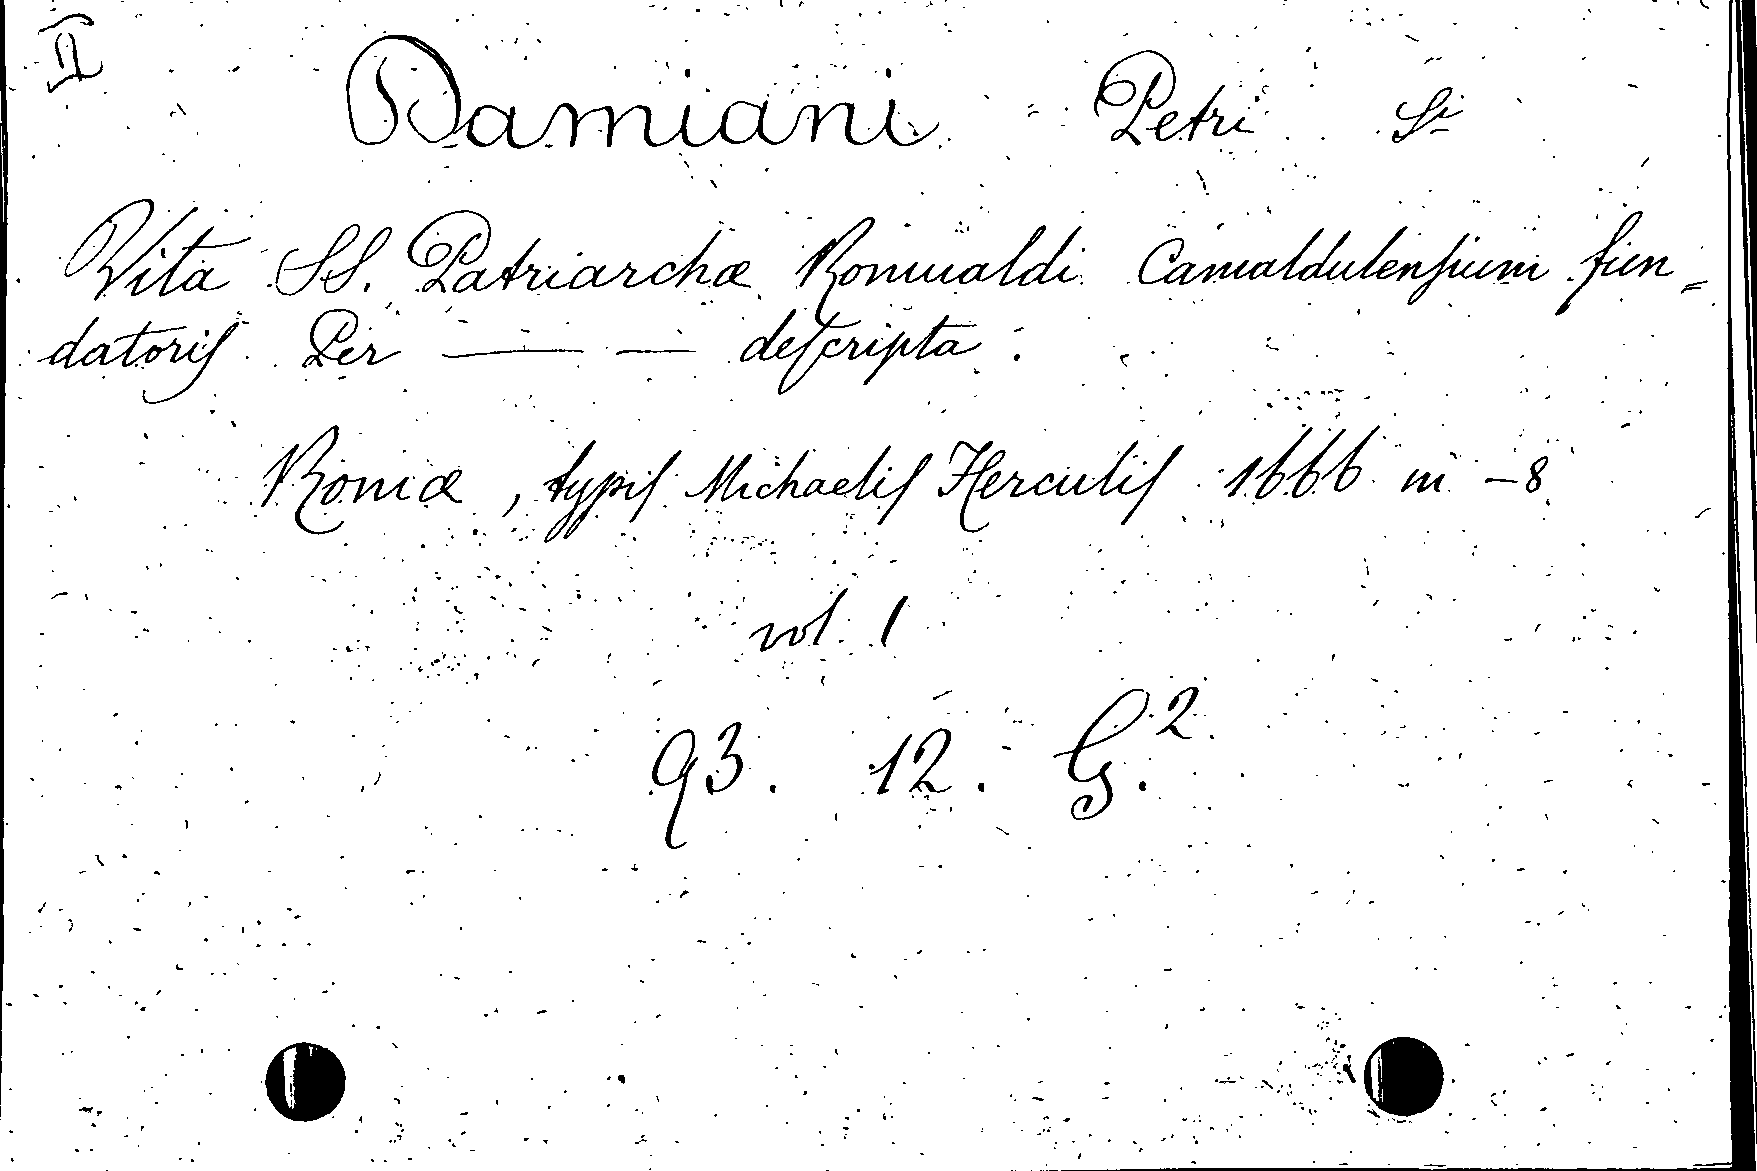 II
Damiani Petri Si
Vita SS. Patriarchæ Romualdi Camaldulensium fun=
datoris Per — — descripta.
Romæ, typis Michaelis Herculis 1666 in -8
vol. 1
93. 12. G.²